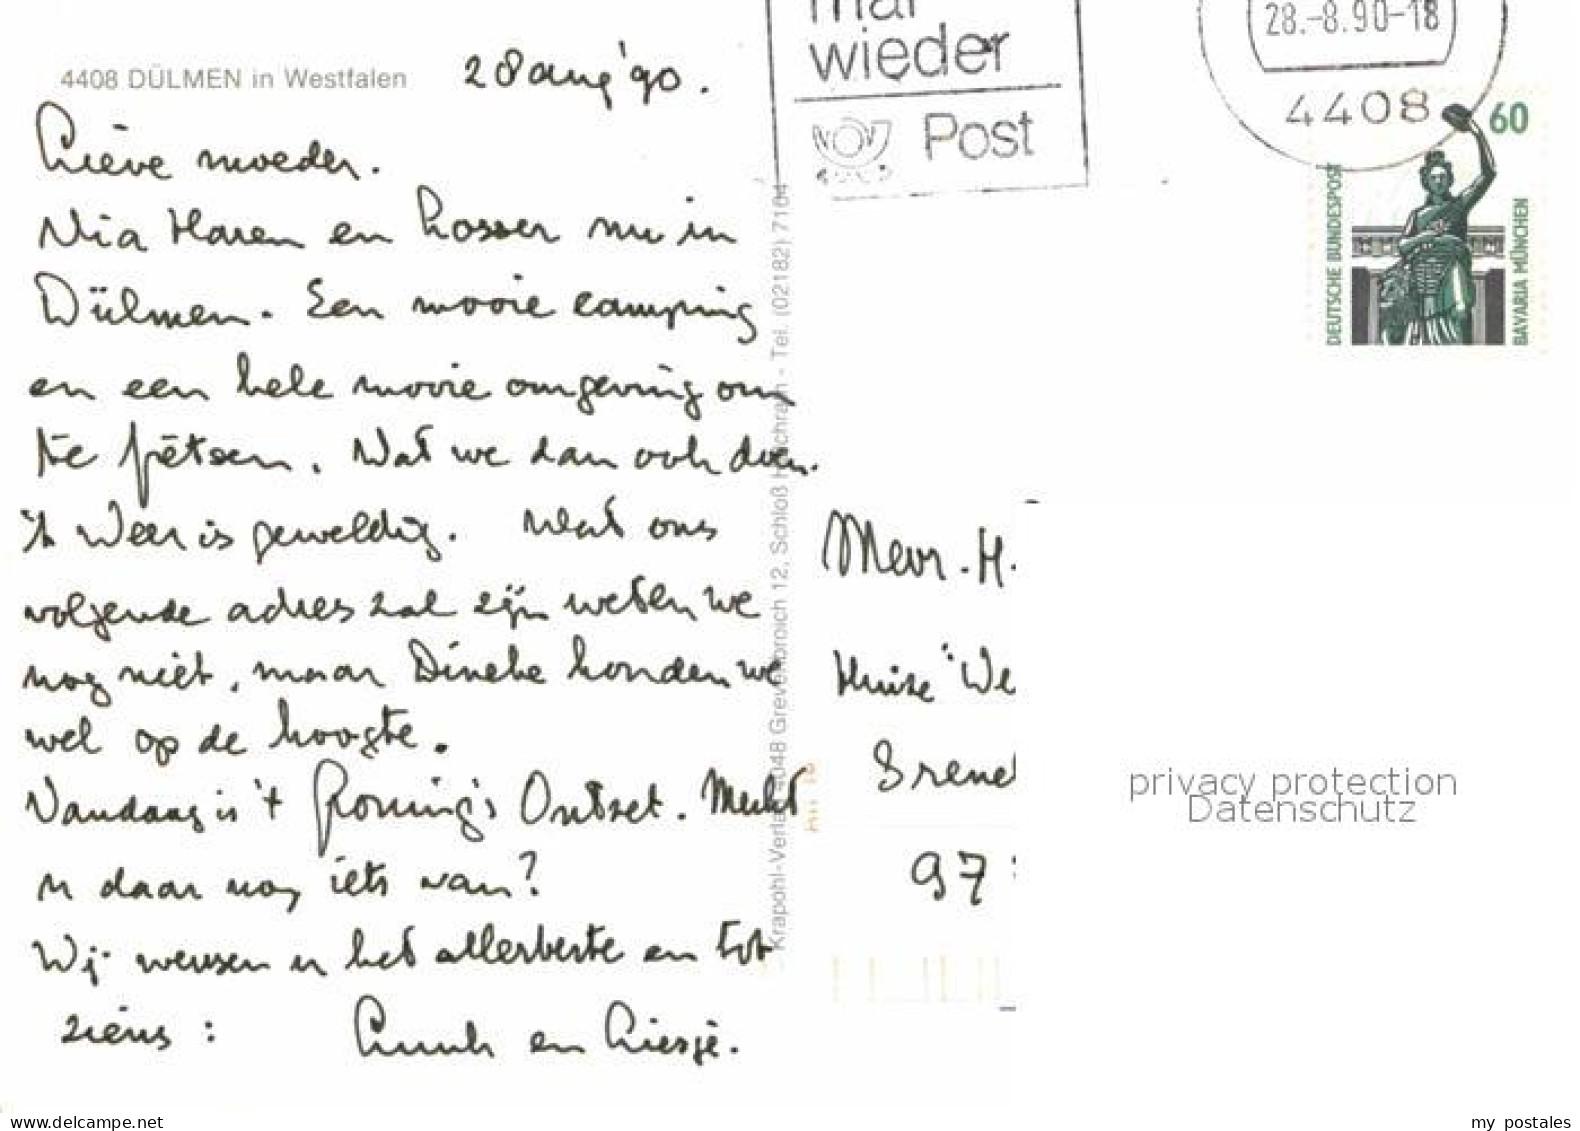 4408 DÜLMEN in Westfalen
28 aug '90.
Lieve moeder.
Via Haren en Losser nu in
Dülmen. Een mooie camping
en een hele mooie omgeving om
te fietsen. Wat we dan ook doen.
't Weer is geweldig. Wat ons
volgende adres zal zijn weten we
nog niet, maar Dineke houden we
wel op de hoogte.
Vandaag is 't Gronings Ontzet. Merkt
u daar nog iets van?
Wij wensen u het allerbeste en tot
ziens :
en Liesje.
Krapohl-Verlag 4048 Grevenbroich 12, Schloß Hülchrath - Tel. (02182) 7104
mal
wieder
Post
28.-8.90-18
4408
60
DEUTSCHE BUNDESPOST
BAVARIA MÜNCHEN
Mevr. H.
Huize "We
97
privacy protection
Datenschutz
www.delcampe.net
my postales